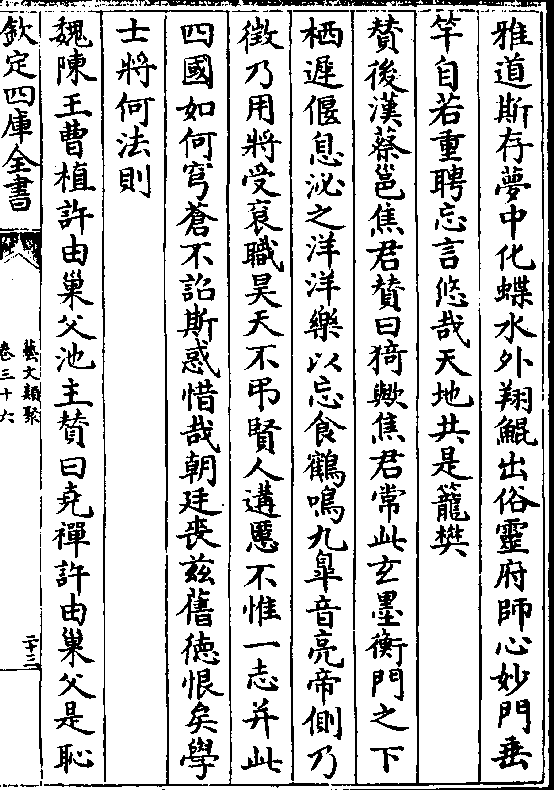 雅道斯存夢中化蝶水外翔鯤出俗靈府師心妙門垂
竿自若重聘忘言悠哉天地共是籠樊
賛後漢蔡邕焦君賛曰猗歟焦君常此𤣥墨衡門之下
栖遲偃息泌之洋洋樂以忘食鶴鳴九臯音亮帝側乃
徴乃用將受衮職昊天不弔賢人遘慝不惟一志并此
四國如何穹蒼不詔斯惑惜哉朝廷喪兹舊徳恨矣學
士將何法則
魏陳王曹植許由巢父池主賛曰堯禪許由巢父是恥
欽定四庫全書
藝文類聚
卷三十六
二十三